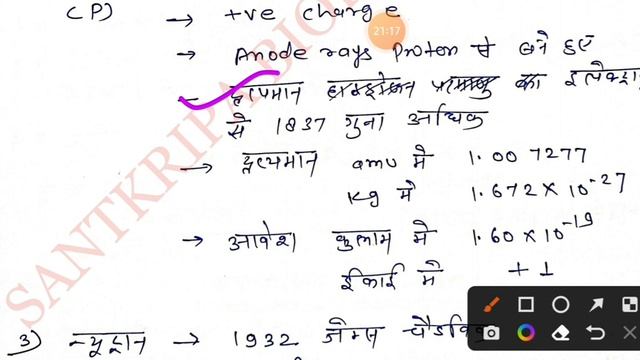 (P) → +ve charge
21:17
→ Anode rays Proton से बने हुए
- द्रव्यमान हाइड्रोजन परमाणु का इलेक्ट्रान
से 1837 गुना अधिक
→ द्रव्यमान amu में 1.007277
kg में 1.672 × 10⁻²⁷
→ आवेश कुलाम में 1.60 × 10⁻¹⁹
ईकाई में +1
3) न्यूट्रान → 1932 जेम्स चैडविक
SANTKRIPABIO